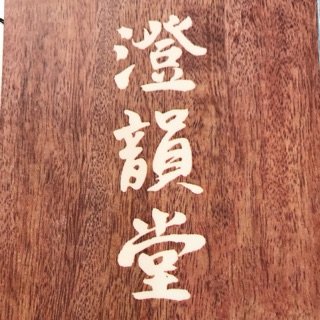 澄韻堂